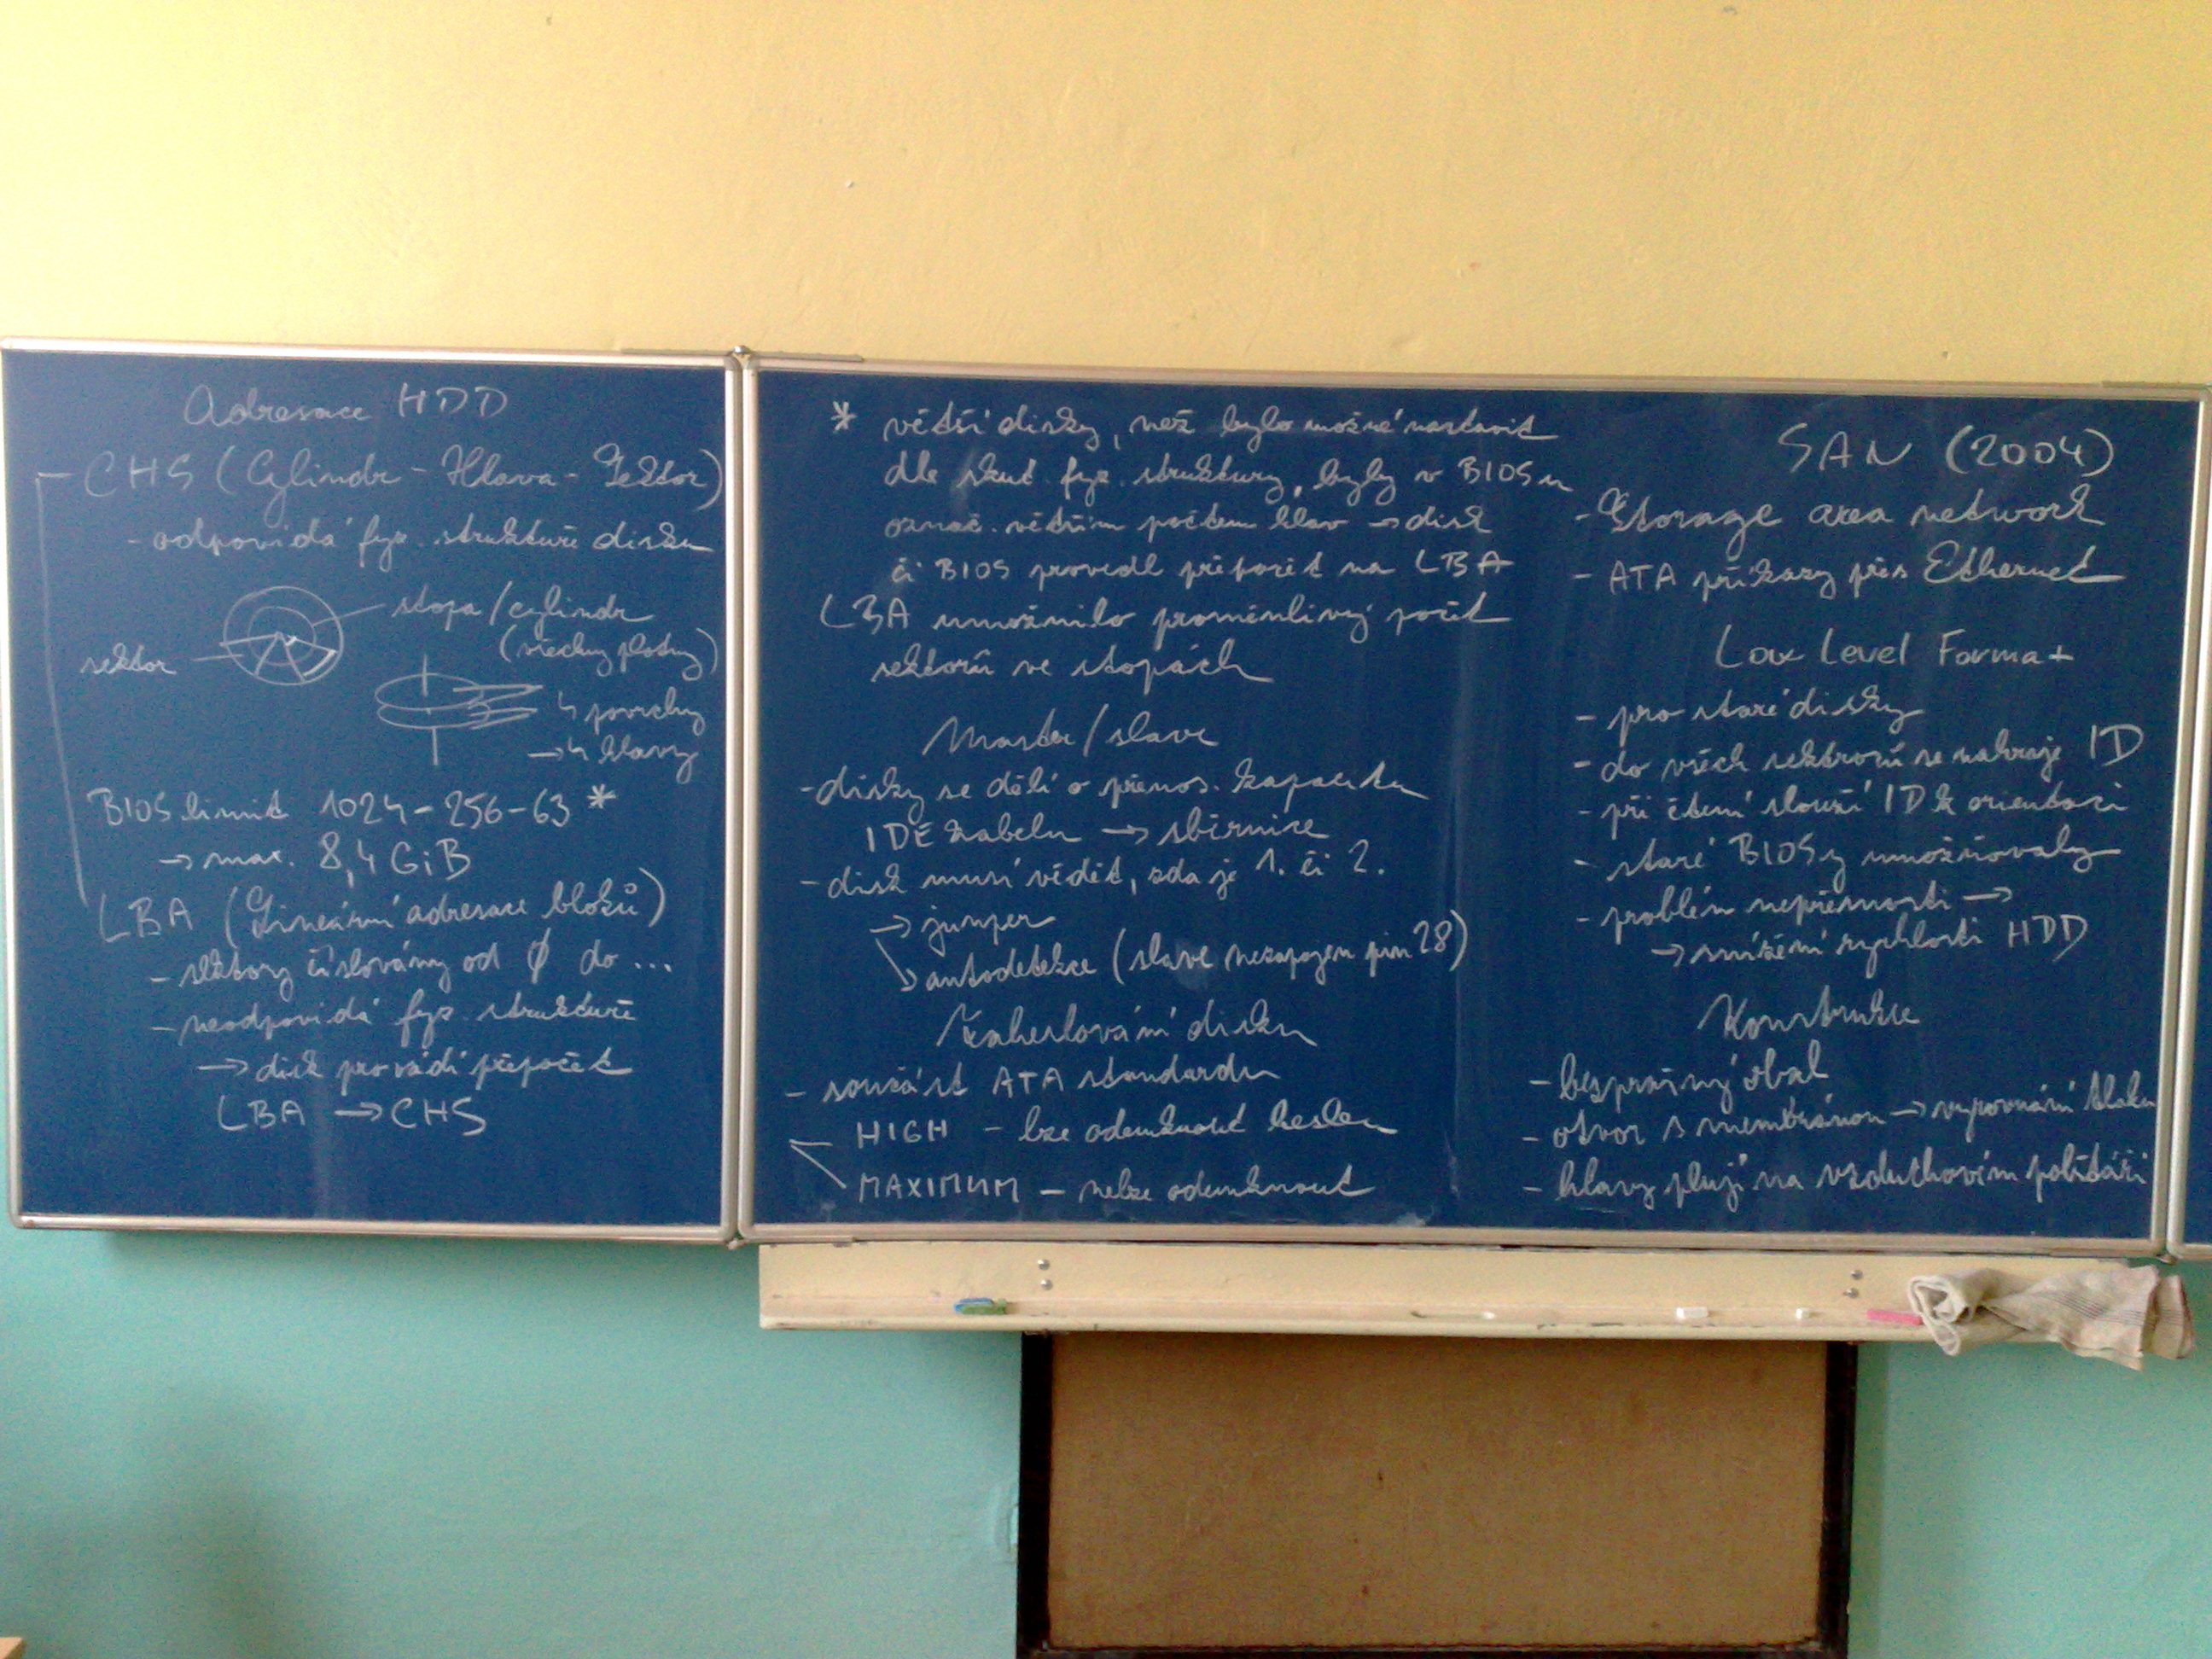 Adresace HDD
- CHS (Cylindr - Hlava - Sektor)
- odpovídá fyz. struktuře disku
stopa/cylindr
(všechny plotny)
sektor
4 povrchy
→ 4 hlavy
BIOS limit 1024-256-63 *
→ max. 8,4 GiB
LBA (Lineární adresace bloků)
- sektory číslovány od 0 do ...
- neodpovídá fyz. struktuře
→ disk provádí přepočet
LBA → CHS
* větší disky, než bylo možné nastavit
dle skut. fyz. struktury, byly v BIOSu
označ. větším počtem hlav → disk
či BIOS provedl přepočet na LBA
LBA umožnilo proměnlivý počet
sektorů ve stopách
Master/slave
- disky se dělí o přenos. kapacitu
IDE kabelu → sběrnice
- disk musí vědět, zda je 1. či 2.
→ jumper
→ autodetekce (slave nezapojen pin 28)
Zaheslování disku
- součást ATA standardu
HIGH - lze odemknout heslem
MAXIMUM - nelze odemknout
SAN (2004)
- Storage area network
- ATA příkazy přes Ethernet
Low Level Format
- pro staré disky
- do všech sektorů se nahraje ID
- při čtení slouží ID k orientaci
- staré BIOSy umožňovaly
- problém nepřesnosti →
→ snížení rychlosti HDD
Konstrukce
- bezprašný obal
- otvor s membránou → vyrovnání tlaku
- hlavy plují na vzduchovém polštáři